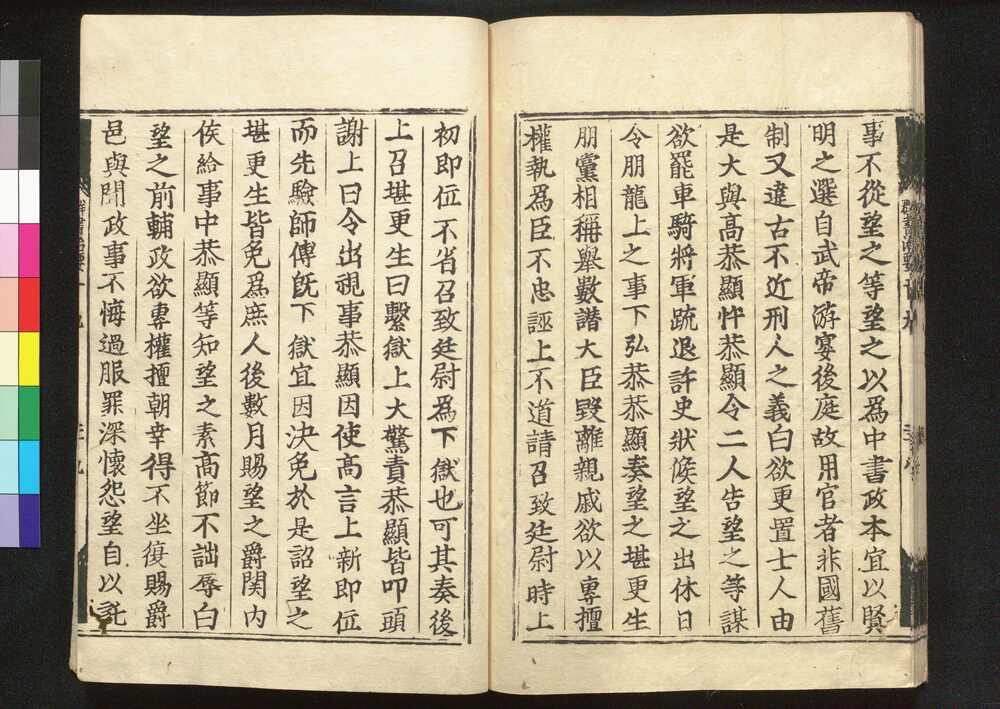 事不從望之等望之以爲中書政本宜以賢
明之選自武帝游宴後庭故用宦者非國舊
制又違古不近刑人之義白欲更置士人由
是大與高恭顯忤恭顯令二人告望之等謀
欲罷車騎將軍疏退許史狀候望之出休日
令朋龍上之事下弘恭恭顯奏望之堪更生
朋黨相稱舉數譖大臣毀離親戚欲以專擅
權執爲臣不忠誣上不道請召致廷尉時上
初即位不省召致廷尉爲下獄也可其奏後
上召堪更生曰繫獄上大驚責恭顯皆叩頭
謝上曰令出視事恭顯因使高言上新即位
而先驗師傅旣下獄宜因決免於是詔望之
堪更生皆免爲庶人後數月賜望之爵関内
侯給事中恭顯等知望之素高節不詘辱白
望之前輔政欲專權擅朝幸得不坐復賜爵
邑與聞政事不悔過服罪深懷怨望自以託
群書治要